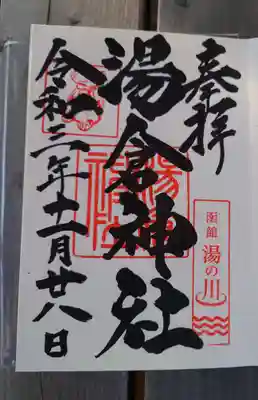 奉拝
函館 湯の川
湯倉神社
令和三年十一月廿八日